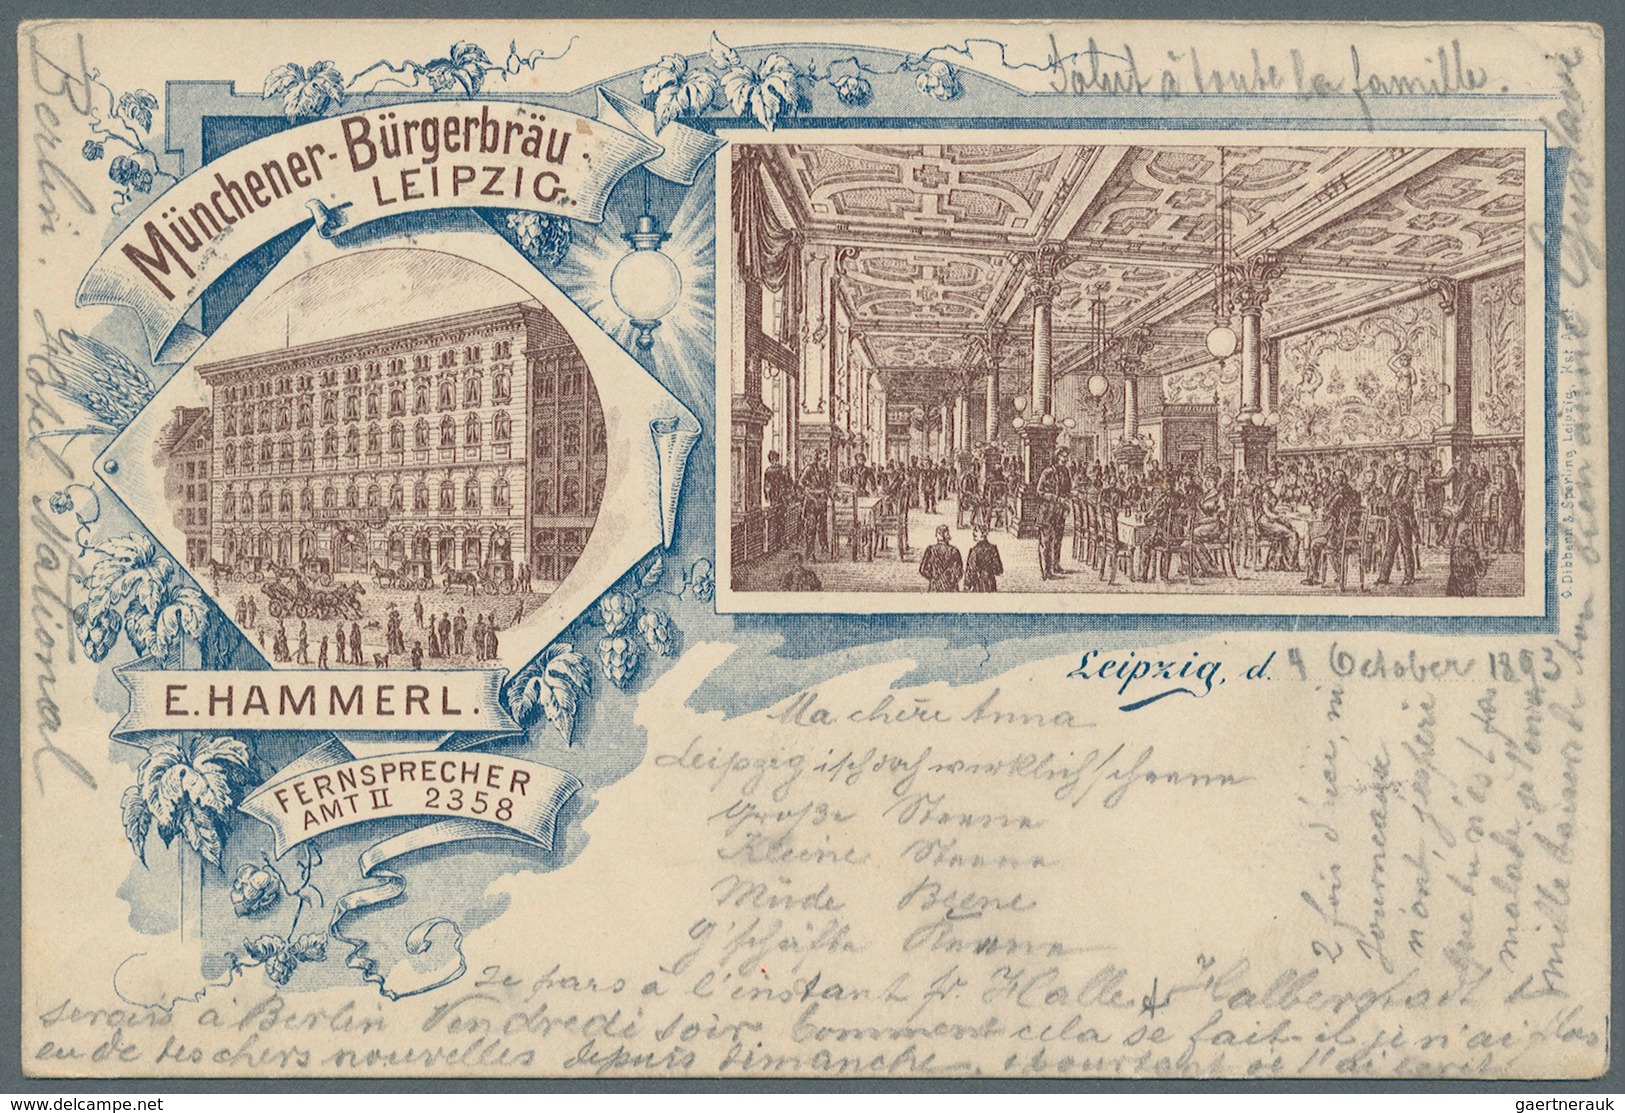 Salut à toute la famille.
Münchener-Bürgerbräu.
LEIPZIG.
E. HAMMERL.
FERNSPRECHER
AMT II 2358
O. Dibbern & Sperling, Leipzig,
Leipzig, d. 4 October 1893
Ma chère Anna
Leipzig isch doch wirklich scheene
Große Steene
Kleine Steene
Müde Beene
G'schäfte Keene
Je pars à l'instant pr. Halle & Halberstadt &
serais à Berlin Vendredi soir Comment cela se fait-il je n'ai plas
eu de tes chers nouvelles depuis dimanche, pourtant je t'ai écrit
2 fois d'ici, ni
journeaux
n'ont, j'espère
que tu n'es pas
malade je t'envoi
mille baiser de ton
Gustave
Berlin. Hôtel National
gaertnerauk @ www.delcampe.net